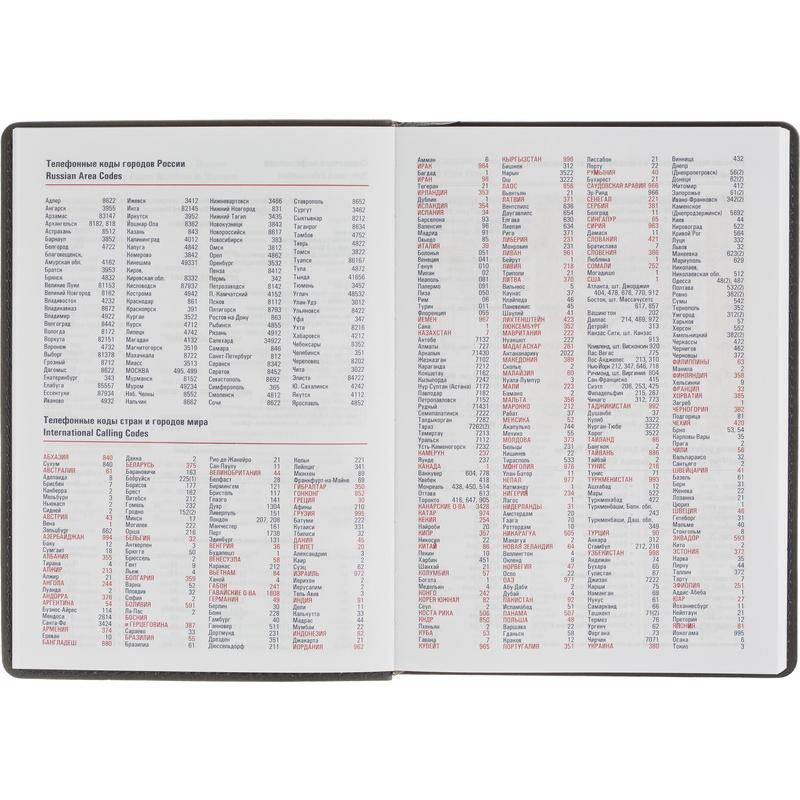 Телефонные коды городов России
Russian Area Codes
Адлер 8622
Ангарск 3955
Арзамас 83147
Архангельск 8182, 818
Астрахань 8512
Барнаул 3852
Белгород 4722
Благовещенск,
Амурская обл. 4162
Братск 3953
Брянск 4832
Великие Луки 81153
Великий Новгород 8162
Владивосток 4232
Владикавказ 8672
Владимир 4922
Волгоград 8442
Вологда 8172
Воркута 82151
Воронеж 4732
Выборг 81378
Грозный 8712
Дагомыс 8622
Екатеринбург 343
Елабуга 85557
Ессентуки 87934
Иваново 4932
Ижевск 3412
Инта 82145
Иркутск 3952
Йошкар-Ола 8362
Казань 843
Калининград 4012
Калуга 4842
Кемерово 3842
Кинешма 49331
Киров,
Кировская обл. 8332
Кисловодск 87937
Кострома 4942
Краснодар 861
Красноярск 391
Курган 3522
Курск 4712
Липецк 4742
Магадан 4132
Магнитогорск 3519
Махачкала 8722
МОСКВА 495, 499
Мурманск 8152
Муром 49234
Наб. Челны 8552
Нальчик 8662
Нижневартовск 3466
Нижний Новгород 831
Нижний Тагил 3435
Новокузнецк 3843
Новороссийск 8617
Новосибирск 383
Омск 3812
Орел 4862
Оренбург 3532
Пенза 8412
Пермь 342
Петрозаводск 8142
П.-Камчатский 4152
Псков 8112
Пятигорск 8793
Ростов-на-Дону 863
Рыбинск 4855
Рязань 4912
Салехард 34922
Самара 846
Санкт-Петербург 812
Саранск 8342
Саратов 8452
Севастополь 8692
Симферополь 365
Смоленск 4812
Сочи 8622
Ставрополь 8652
Сургут 3462
Сыктывкар 8212
Таганрог 8634
Тамбов 4752
Тверь 4822
Томск 3822
Туапсе 86167
Тула 4872
Тында 41656
Тюмень 3452
Углич 48532
Улан Удэ 3012
Ульяновск 8422
Уфа 347
Ухта 8216
Хабаровск 4212
Чебоксары 8352
Челябинск 351
Череповец 8202
Чита 3022
Элиста 84722
Ю. Сахалинск 4242
Якутск 4112
Ярославль 4852
Телефонные коды стран и городов мира
International Calling Codes
АБХАЗИЯ 840
Сухум 840
АВСТРАЛИЯ 61
Аделаида 8
Брисбен 7
Канберра 2
Мельбурн 3
Ньюкасл 2
Сидней 2
АВСТРИЯ 43
Вена 1
Зальцбург 662
АЗЕРБАЙДЖАН 994
Баку 12
Сумгаит 18
АЛБАНИЯ 355
Тирана 4
АЛЖИР 213
Алжир 21
АНГОЛА 244
Луанда 2
АНДОРРА 376
АРГЕНТИНА 54
Буэнос-Айрес 114
Мендоса 2614
Санта-Фе 3424
АРМЕНИЯ 374
Ереван 10
БАНГЛАДЕШ 880
Дакка 2
БЕЛАРУСЬ 375
Барановичи 163
Бобруйск 225(1)
Борисов 177
Брест 162
Витебск 212
Гомель 232
Гродно 152(2)
Минск 17
Могилев 222
Орша 216
БЕЛЬГИЯ 32
Антверпен 3
Брюгге 50
Брюссель 2
Гент 9
Льеж 4
БОЛГАРИЯ 359
Варна 52
Пловдив 32
София 2
БОЛИВИЯ 591
Ла-Пас 2
БОСНИЯ
и ГЕРЦЕГОВИНА 387
Сараево 33
БРАЗИЛИЯ 55
Бразилиа 61
Рио-де-Жанейро 21
Сан-Паулу 11
ВЕЛИКОБРИТАНИЯ 44
Белфаст 28
Бирмингем 121
Бристоль 117
Глазго 141
Дувр 1304
Ливерпуль 151
Лондон 207, 208
Манчестер 161
Перт 1738
Эдинбург 131
ВЕНГРИЯ 36
Будапешт 1
ВЕНЕСУЭЛА 58
Каракас 212
ВЬЕТНАМ 84
Ханой 4
ГАБОН 241
ГАВАЙСКИЕ О-ВА 1808
ГЕРМАНИЯ 49
Берлин 30
Бонн 228
Гамбург 40
Ганновер 511
Дортмунд 231
Дрезден 351
Дюссельдорф 211
Кельн 221
Лейпциг 341
Мюнхен 89
Франкфурт-на-Майне 69
ГИБРАЛТАР 350
ГОНКОНГ 852
ГРЕЦИЯ 30
Афины 210
ГРУЗИЯ 995
Батуми 222
Кутаиси 331
Тбилиси 32
ДАНИЯ 45
ЕГИПЕТ 20
Александрия 3
Каир 2
Суэц 62
ИЗРАИЛЬ 972
Иерихон 2
Иерусалим 2
Тель-Авив 3
ИНДИЯ 91
Дели 11
Калькутта 33
Мадрас 44
Мумбаи 22
ИНДОНЕЗИЯ 62
Джакарта 21
ИОРДАНИЯ 962
Амман 6
ИРАК 964
Багдад 1
ИРАН 98
Тегеран 21
ИРЛАНДИЯ 353
Дублин 1
ИСЛАНДИЯ 354
ИСПАНИЯ 34
Барселона 93
Валенсия 96
Мадрид 91
Овьедо 85
ИТАЛИЯ 39
Болонья 051
Венеция 041
Генуя 010
Милан 02
Неаполь 081
Палермо 091
Пиза 050
Рим 06
Турин 011
Флоренция 055
ЙЕМЕН 967
Сана 1
КАЗАХСТАН 7
Актобе 7132
Алматы 727
Аркалык 71430
Жезказган 7102
Караганда 7212
Кокшетау 7162
Кызылорда 7242
Нур-Султан (Астана) 7172
Павлодар 7182
Петропавловск 7152
Рудный 71431
Семипалатинск 7222
Талдыкорган 7282
Тараз 7262(2)
Темиртау 7213
Уральск 7112
Усть-Каменогорск 7232
КАМЕРУН 237
КАНАДА 1
Ванкувер 604, 778
Квебек 418
Монреаль 438, 450, 514
Оттава 613
Торонто 416, 647, 905
КАНАРСКИЕ О-ВА 3428
КАТАР 974
КЕНИЯ 254
Найроби 20
КИПР 357
Никосия 22
КИТАЙ 86
Пекин 10
Харбин 451
Шанхай 21
КОЛУМБИЯ 57
Богота 1
Медельин 4
КОНГО 242
КОРЕЯ ЮЖНАЯ 82
Сеул 2
КОСТА-РИКА 506
КНДР 850
Пхеньян 2
КУБА 53
Гавана 7
КУВЕЙТ 965
КЫРГЫЗСТАН 996
Бишкек 312
Нарын 3522
Ош 3222
ЛАОС 856
Вьентьян 21
ЛАТВИЯ 371
Вентспилс 636
Даугавпилс 654
Елгава 630
Лиепая 634
Рига 371
ЛИБЕРИЯ 231
Монровия 231
ЛИВАН 961
Бейрут 1
ЛИВИЯ 218
Триполи 21
ЛИТВА 370
Вильнюс 5
Каунас 37
Клайпеда 46
Паневежис 45
Шяуляй 41
ЛИХТЕНШТЕЙН 423
ЛЮКСЕМБУРГ 352
МАВРИТАНИЯ 222
Нуакшот 222
МАДАГАСКАР 261
Антананариву 2022
МАКЕДОНИЯ 389
Скопье 2
МАЛАЙЗИЯ 60
Куала-Лумпур 3
МАЛИ 223
Бамако 2
МАЛЬТА 356
МАРОККО 212
Рабат 37
МЕКСИКА 52
Акапулько 744
Мехико 55
МОЛДОВА 373
Бельцы 231
Кишинев 22
Тирасполь 533
МОНГОЛИЯ 976
Улан-Батор 11
НЕПАЛ 977
Катманду 1
НИГЕРИЯ 234
Лагос 1
НИДЕРЛАНДЫ 31
Амстердам 20
Гаага 70
Роттердам 10
НИКАРАГУА 505
Манагуа 2
НОВАЯ ЗЕЛАНДИЯ 64
Веллингтон 4
НОРВЕГИЯ 47
Осло 22
ОАЭ 971
Абу-Даби 2
Дубай 4
ПАКИСТАН 92
Исламабад 51
ПАНАМА 507
ПОЛЬША 48
Варшава 22
Гданьск 58
Краков 12
ПОРТУГАЛИЯ 351
Лиссабон 21
Порту 22
РУМЫНИЯ 40
Бухарест 21
САУДОВСКАЯ АРАВИЯ 966
Эр-Рияд 1
СЕНЕГАЛ 221
СЕРБИЯ 381
Белград 11
СИНГАПУР 65
СИРИЯ 963
Дамаск 11
СЛОВАКИЯ 421
Братислава 7
СЛОВЕНИЯ 386
Любляна 1
СОМАЛИ 252
Могадишо 1
США 1
Атланта, шт. Джорджия
404, 478, 678, 770, 912
Бостон, шт. Массачусетс
617, 857
Вашингтон 202
Даллас 214, 469, 972
Детройт 313
Канзас-Сити, шт. Канзас
913
Кливленд, шт. Висконсин 920
Лас-Вегас 775
Лос-Анджелес 213, 310
Нью-Йорк 212, 347, 646, 718
Ричмонд, шт. Виргиния 804
Сан-Франциско 415
Сиэтл 206, 253, 425
Филадельфия 215, 267
Чикаго 312, 773
ТАДЖИКИСТАН 992
Душанбе 37
Куляб 3322
Курган-Тюбе 3222
Хорог 3522
ТАИЛАНД 66
Бангкок 2
ТАЙВАНЬ 886
Тайбэй 2
ТУНИС 216
Тунис 71
ТУРКМЕНИСТАН 993
Ашхабад 12
Мары 522
Туркменабад 422
Туркменбаши, Балк. обл.
243
Туркменбаши, Даш. обл.
ТУРЦИЯ 90
Анкара 312
Стамбул 212, 216
УЗБЕКИСТАН 998
Андижан 74
Бухара 65
Гулистан 67
Джизак 72
Карши 75
Наманган 69
Нукус 61
Самарканд 66
Ташкент 71(2)
Термез 76
Ургенч 62
Фергана 73
Чирчик 7071
УКРАИНА 380
Винница 432
Днепр
(Днепропетровск) 56(2)
Донецк 62(2)
Житомир 412
Запорожье 61(2)
Ивано-Франковск 342(2)
Каменское
(Днепродзержинск) 5692
Киев 44
Кировоград 522
Кривой Рог 564
Луцк 332
Львов 32
Макеевка 623(2)
Мариуполь 629
Николаев,
Николаевская обл. 512
Одесса 48(2), 487
Полтава 532(2)
Ровно 382(2)
Сумы 542
Тернополь 352
Ужгород 312(2)
Харьков 57
Херсон 552
Хмельницкий 382(2)
Черкассы 472
Чернигов 462
Черновцы 372
ФИЛИППИНЫ 63
Манила 2
ФИНЛЯНДИЯ 358
Хельсинки 9
ФРАНЦИЯ 33
ХОРВАТИЯ 385
Загреб 1
ЧЕРНОГОРИЯ 382
Подгорица 81
ЧЕХИЯ 420
Брно 53, 54
Карловы-Вары 35
Прага 2
ЧИЛИ 56
Вальпараисо 32
Сантьяго 2
ШВЕЙЦАРИЯ 41
Базель 61
Берн 31
Женева 22
Лозанна 21
Цюрих 44
ШВЕЦИЯ 46
Гетеборг 31
Мальме 40
Стокгольм 8
ЭКВАДОР 593
Кито 2
ЭСТОНИЯ 372
Нарва 35
Пярну 44
Таллин 372
Тарту 7
ЭФИОПИЯ 251
Аддис-Абеба 1
ЮАР 27
Йоханнесбург 11
Кейптаун 21
Претория 12
ЯПОНИЯ 81
Иокогама 995
Осака 6
Токио 3